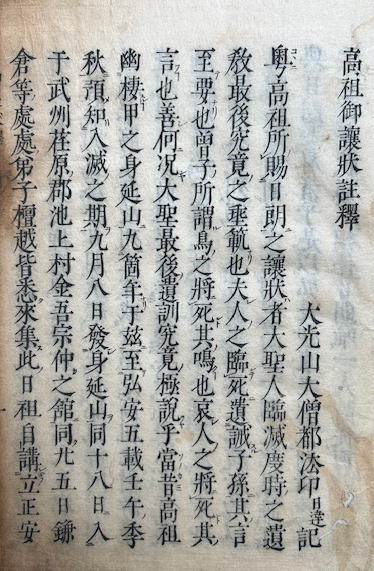 高祖御讓狀註釋
大光山大僧都法印日達記
粤高祖所賜日朗之讓狀者大聖人臨滅度時之遺
敎最後究竟之垂範也夫人之臨死遺誡子孫其言
至要也曽子所謂鳥之將死其鳴也哀人之將死其
言也善何况大聖最後遺訓究竟極說乎當昔高祖
幽棲甲之身延山九箇年于玆至弘安五載壬午季
秋預知入滅之期九月八日發身延山同十八日入
于武州荏原郡池上村金吾宗仲之館同廿五日鎌
倉等處處弟子檀越皆悉來集此日祖自講立正安